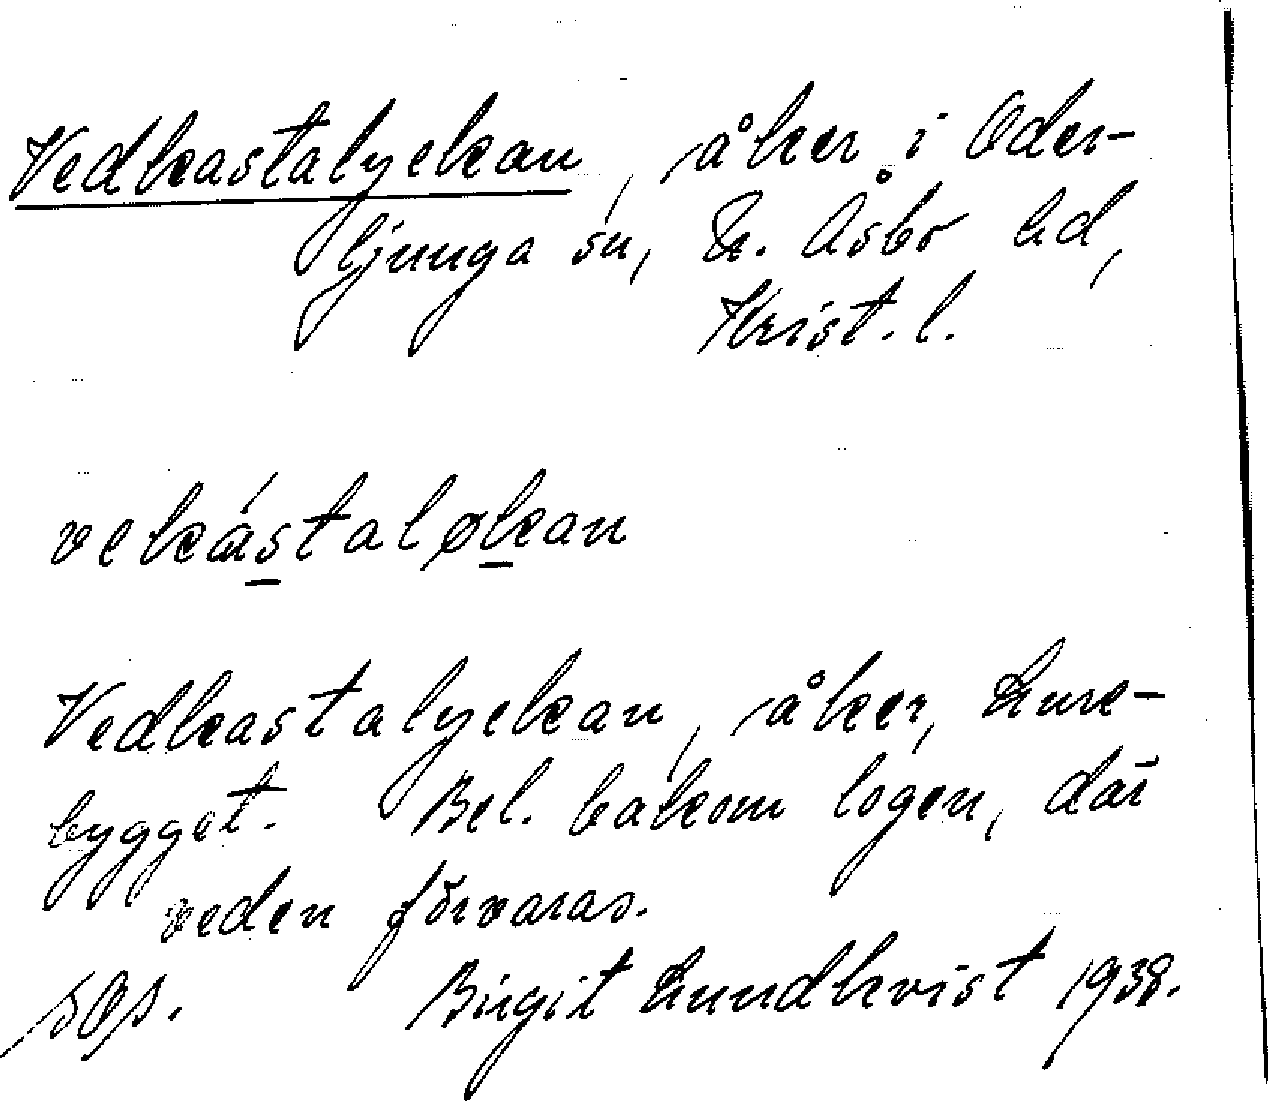 Vedkastalyckan, åker i Oder-
ljunga sn, N. Åsbo hd,
Krist. l.
vekástaløkan
Vedkastalyckan, åker, Lure-
bygget. Bel. bakom logen, där
veden förvaras.
Birgit Lundkvist 1938.